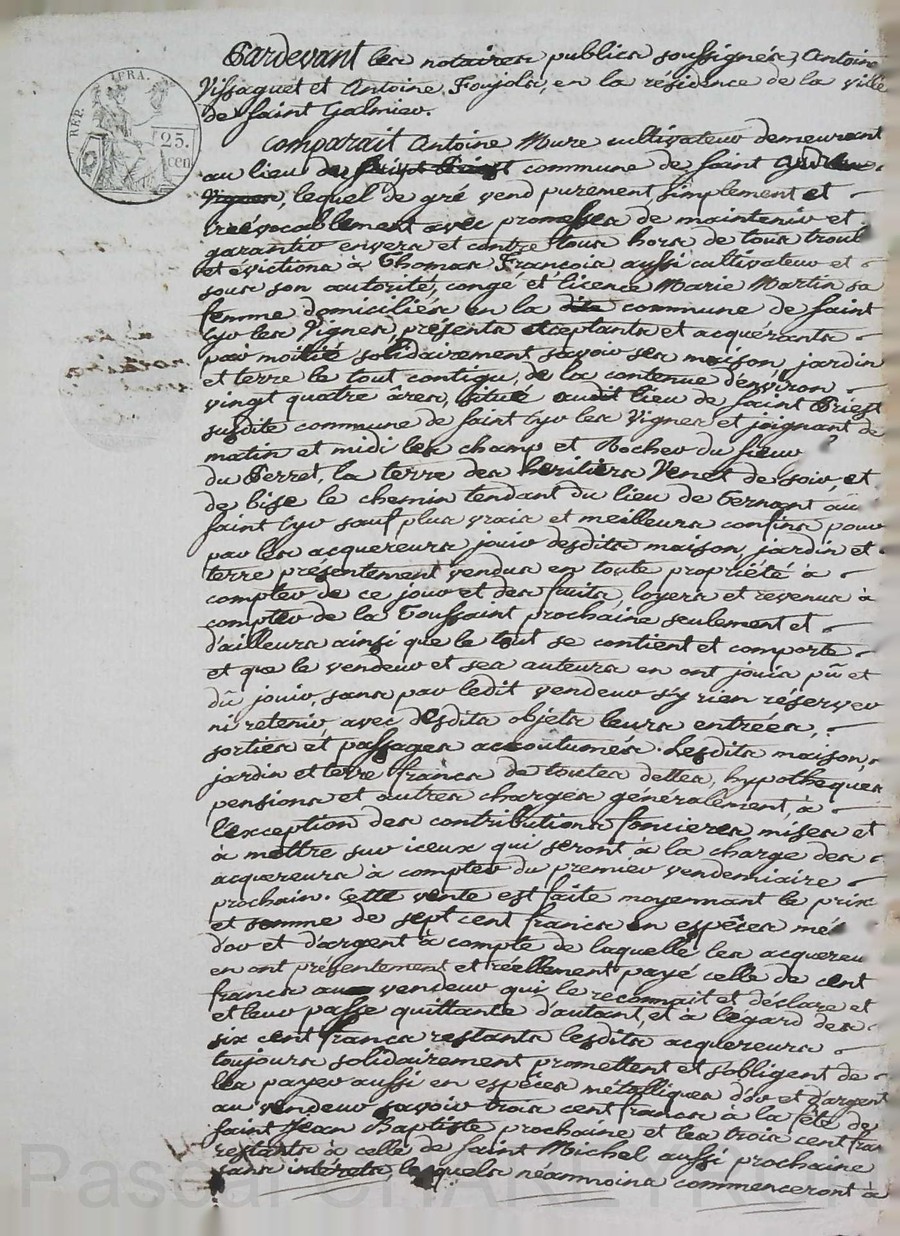 REP. FRA.
25.
cen
Pardevant les notaires publics soussignés, Antoine
Vissaguet et Antoine Foujols, en la résidence de la ville
de Saint Galmier.
Comparait Antoine Mure cultivateur demeurant
au lieu de commune de Saint
lequel de gré vend purement, simplement et
irrévocablement avec promesses de maintenir et
garantir envers et contre tous hors de tous troub
et evictions à Thomas François aussi cultivateur et
sous son autorité, congé et licence Marie Martin sa
femme domiciliés en la dite commune de Saint
Cyr les Vignes, présents acceptants et acquérants
par moitié solidairement savoir ses maison, jardin
et terre le tout contigu, de la contenue d'environ
vingt quatre âres, situé audit lieu de Saint Priest
susdite commune de Saint Cyr les Vignes et joignant de
matin et midi les champ et Rocher du sieur
du Perret, la terre des heritiers Venet de soir, et
de bise le chemin tendant du lieu de au
Saint Cyr sauf plus vrais et meilleurs confins pour
par les acquereurs jouir desdits maison, jardin et
terre présentement vendus en toute propriété à
compter de ce jour et des fruits, loyers et revenus à
compter de la Toussaint prochaine seulement et
d'ailleurs ainsi que le tout se contient et comporte
et que le vendeur et ses auteurs en ont jouis pû et
dû jouir, sans par ledit vendeur s'y rien réserver
ni retenir, avec desdits objets leurs entrées,
sorties et passages accoutumés. Lesdits maison,
jardin et terre francs de toutes dettes, hypotheques
pensions et autres charges généralement, à
l'exception des contributions foncieres mises et
à mettre sur iceux qui seront à la charge des
acquereurs à compter du premier vendemiaire
prochain. Cette vente est faite moyennant le prix
et somme de sept cent francs en espêces mé
d'or et d'argent à compte de laquelle les acquereu
en ont présentement et réellement payé celle de cent
francs au vendeur qui le reconnait et déclare et
et leur passe quittance d'autant, et à l'égard des
six cent francs restants lesdits acquereurs
toujours solidairement promettent et s'obligent de
les payer aussi en espêces métalliques d'or et d'argent
au vendeur savoir trois cent francs à la fête de
Saint Jean Baptiste prochaine et les trois cent fran
restants à celle de Saint Michel aussi prochaine
sans intérets, lesquels néanmoins commenceront à
Pascal CHANEYRON